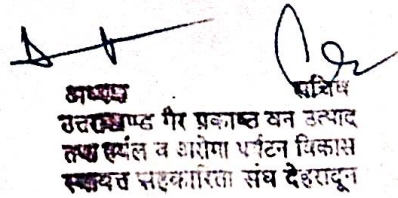 अध्यक्ष सचिव
उत्तराखण्ड गैर प्रकाष्ठ वन उत्पाद
तथा हर्बल व अरोमा पर्यटन विकास
स्वायत्त सहकारिता संघ देहरादून